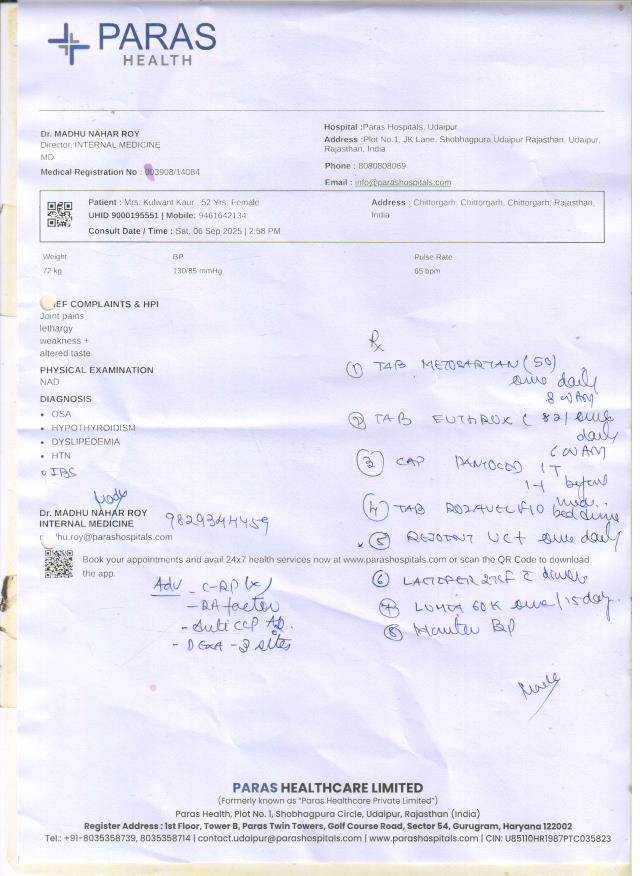 PARAS
HEALTH
Dr. MADHU NAHAR ROY
Director, INTERNAL MEDICINE
MD
Medical Registration No : 003908/14084
Hospital :Paras Hospitals, Udaipur
Address :Plot No.1, JK Lane, Shobhagpura,Udaipur Rajasthan, Udaipur,
Rajasthan, India
Phone : 8080808069
Email : info@parashospitals.com
Patient : Mrs. Kulwant Kaur , 52 Yrs. Female
UHID 9000195551 | Mobile: 9461642134
Consult Date / Time : Sat, 06 Sep 2025 | 2:58 PM
Address : Chittorgarh, Chittorgarh, Chittorgarh, Rajasthan,
India
Weight BP Pulse Rate
72 kg 130/85 mmHg 65 bpm
IEF COMPLAINTS & HPI
Joint pains
lethargy
weakness +
altered taste
PHYSICAL EXAMINATION
NAD
DIAGNOSIS
• OSA
• HYPOTHYROIDISM
• DYSLIPEDEMIA
• HTN
• IBS
Rx
① TAB METOSARTAN (50)
one daily
8 AM
② TAB EUTHROX ( one
daily
6 AM
③ CAP PANTOCID
before
④ TAB ROZAVEL F10
bed time
⑤ one daily
⑥ dinner
⑦ 60K one/15 day.
⑧ Monitor BP
Dr. MADHU NAHAR ROY
INTERNAL MEDICINE
9829344459
hu.roy@parashospitals.com
Book your appointments and avail 24x7 health services now at www.parashospitals.com or scan the QR Code to download
the app.
Adv - C-RP
- RA factor
- Anti CCP Ab.
- DEXA - 3 sites
PARAS HEALTHCARE LIMITED
(Formerly known as "Paras Healthcare Private Limited")
Paras Health, Plot No. 1, Shobhagpura Circle, Udaipur, Rajasthan (India)
Register Address : 1st Floor, Tower B, Paras Twin Towers, Golf Course Road, Sector 54, Gurugram, Haryana 122002
Tel.: +91-8035358739, 8035358714 | contact.udaipur@parashospitals.com | www.parashospitals.com | CIN: U85110HR1987PTC035823